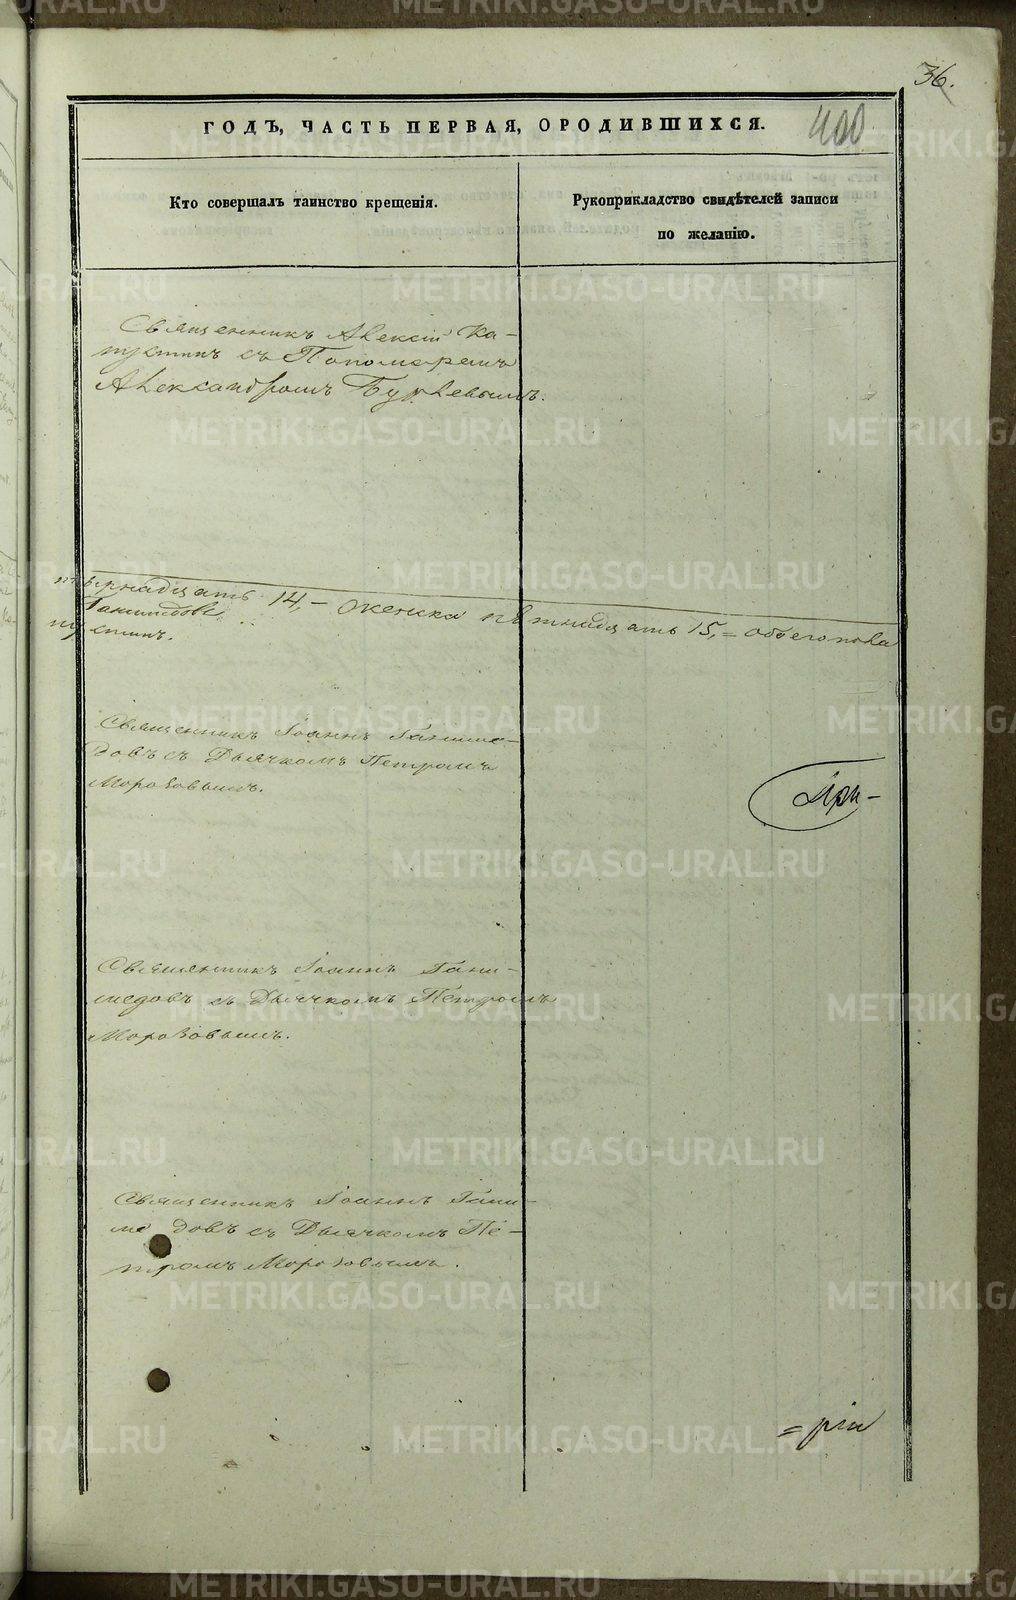 36.
ГОДЪ, ЧАСТЬ ПЕРВАЯ, О РОДИВШИХСЯ.
400
Кто совершалъ таинство крещенія.
Рукоприкладство свидѣтелей записи
по желанію.
Священникъ Алексій Ка-
пустинъ съ Пономаремъ
Александромъ Бурлевымъ.
14, – женска пятнадцать 15, = обоего пола
Ганимедовъ
пустинъ.
Священникъ Іоаннъ Ганиме-
довъ съ Дьячкомъ Петромъ
Морозовымъ.
При-
Священникъ Іоаннъ Гани-
медовъ съ Дьячкомъ Петромъ
Морозовымъ.
Священникъ Іоаннъ Гани-
ме довъ съ Дьячкомъ Пе-
тромъ Морозовымъ.
= ріи
METRIKI.GASO-URAL.RU